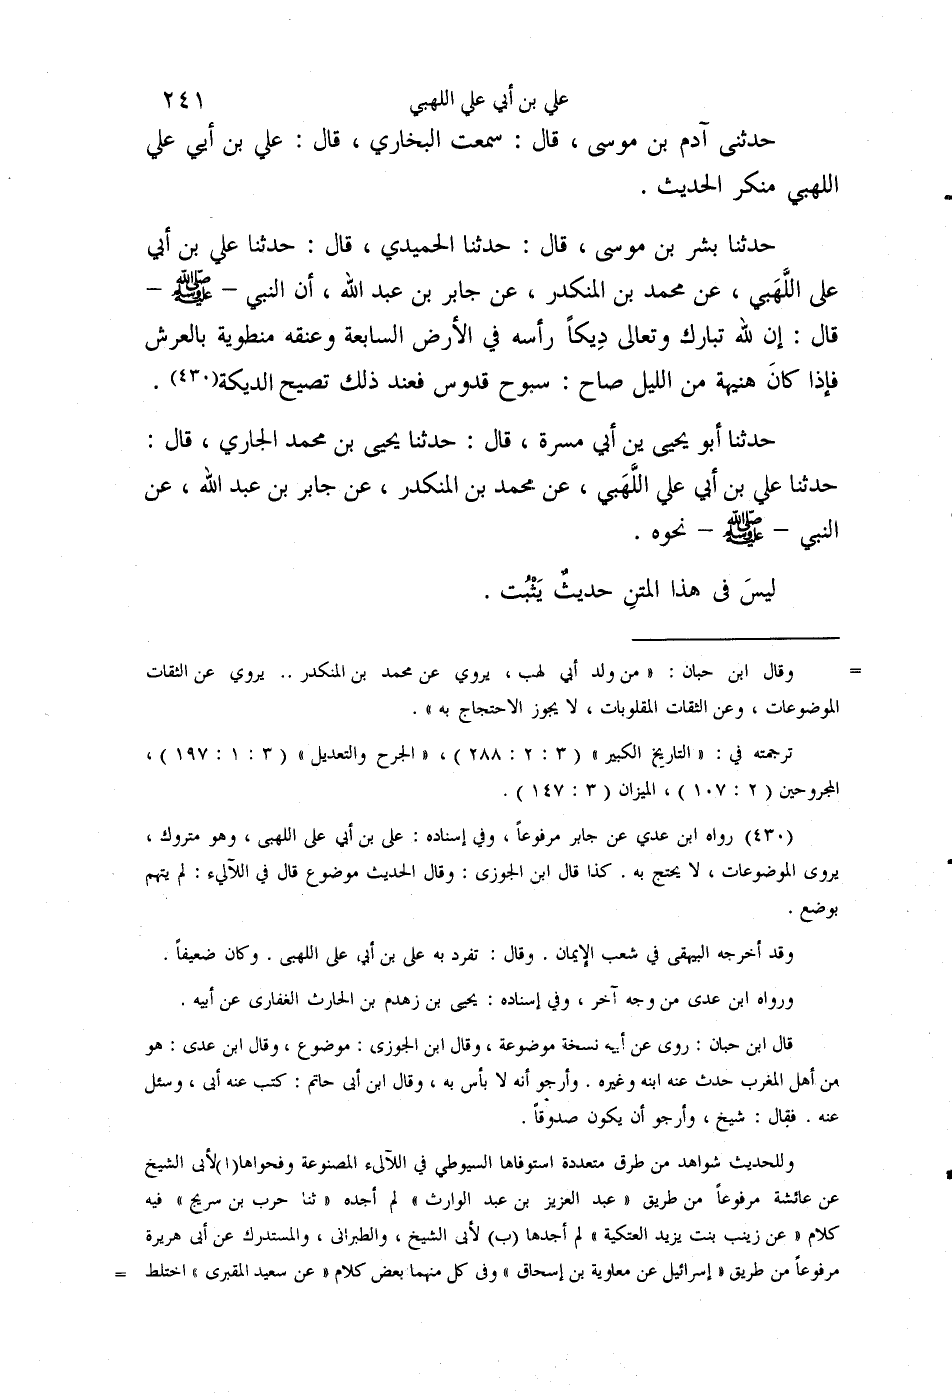 علي بن أبي علي اللهبي ٢٤١
حدثنى آدم بن موسى ، قال : سمعت البخاري ، قال : علي بن أبي علي
اللهبي منكر الحديث .
حدثنا بشر بن موسى ، قال : حدثنا الحميدي ، قال : حدثنا علي بن أبي
على اللَّهَبي ، عن محمد بن المنكدر ، عن جابر بن عبد الله ، أن النبي – ﷺ –
قال : إن لله تبارك وتعالى دِيكاً رأسه في الأرض السابعة وعنقه منطوية بالعرش
فإذا كانَ هنيهة من الليل صاح : سبوح قدوس فعند ذلك تصيح الديكة(٤٣٠) .
حدثنا أبو يحيى ين أبي مسرة ، قال : حدثنا يحيى بن محمد الجاري ، قال :
حدثنا علي بن أبي علي اللَّهَبي ، عن محمد بن المنكدر ، عن جابر بن عبد الله ، عن
النبي – ﷺ – نحوه .
ليسَ فى هذا المتنِ حديثٌ يَثْبُت .
= وقال ابن حبان : « من ولد أبي لهب ، يروي عن محمد بن المنكدر .. يروي عن الثقات
الموضوعات ، وعن الثقات المقلوبات ، لا يجوز الاحتجاج به » .
ترجمته في : « التاريخ الكبير » ( ٣ : ٢ : ٢٨٨ ) ، « الجرح والتعديل » ( ٣ : ١ : ١٩٧ ) ،
المجروحين ( ٢ : ١٠٧ ) ، الميزان ( ٣ : ١٤٧ ) .
(٤٣٠) رواه ابن عدي عن جابر مرفوعاً ، وفي إسناده : على بن أبي على اللهبى ، وهو متروك ،
يروى الموضوعات ، لا يحتج به . كذا قال ابن الجوزى : وقال الحديث موضوع قال في اللآليء : لم يتهم
بوضع .
وقد أخرجه البيهقى في شعب الإيمان . وقال : تفرد به على بن أبي على اللهبى . وكان ضعيفاً .
ورواه ابن عدى من وجه آخر ، وفي إسناده : يحيى بن زهدم بن الحارث الغفارى عن أبيه .
قال ابن حبان : روى عن أبيه نسخة موضوعة ، وقال ابن الجوزى : موضوع ، وقال ابن عدى : هو
من أهل المغرب حدث عنه ابنه وغيره . وأرجو أنه لا بأس به ، وقال ابن أبى حاتم : كتب عنه أبى ، وسئل
عنه . فقال : شيخ ، وأرجو أن يكون صدوقاً .
وللحديث شواهد من طرق متعددة استوفاها السيوطي في اللآلىء المصنوعة وفحواها(ا)لأبى الشيخ
عن عائشة مرفوعاً من طريق « عبد العزيز بن عبد الوارث » لم أجده « ثنا حرب بن سريج » فيه
كلام « عن زينب بنت يزيد العتكية » لم أجدها (ب) لأبى الشيخ ، والطبرانى ، والمستدرك عن أبى هريرة
مرفوعاً من طريق « إسرائيل عن معاوية بن إسحاق » وفى كل منهما بعض كلام « عن سعيد المقبرى » اختلط =